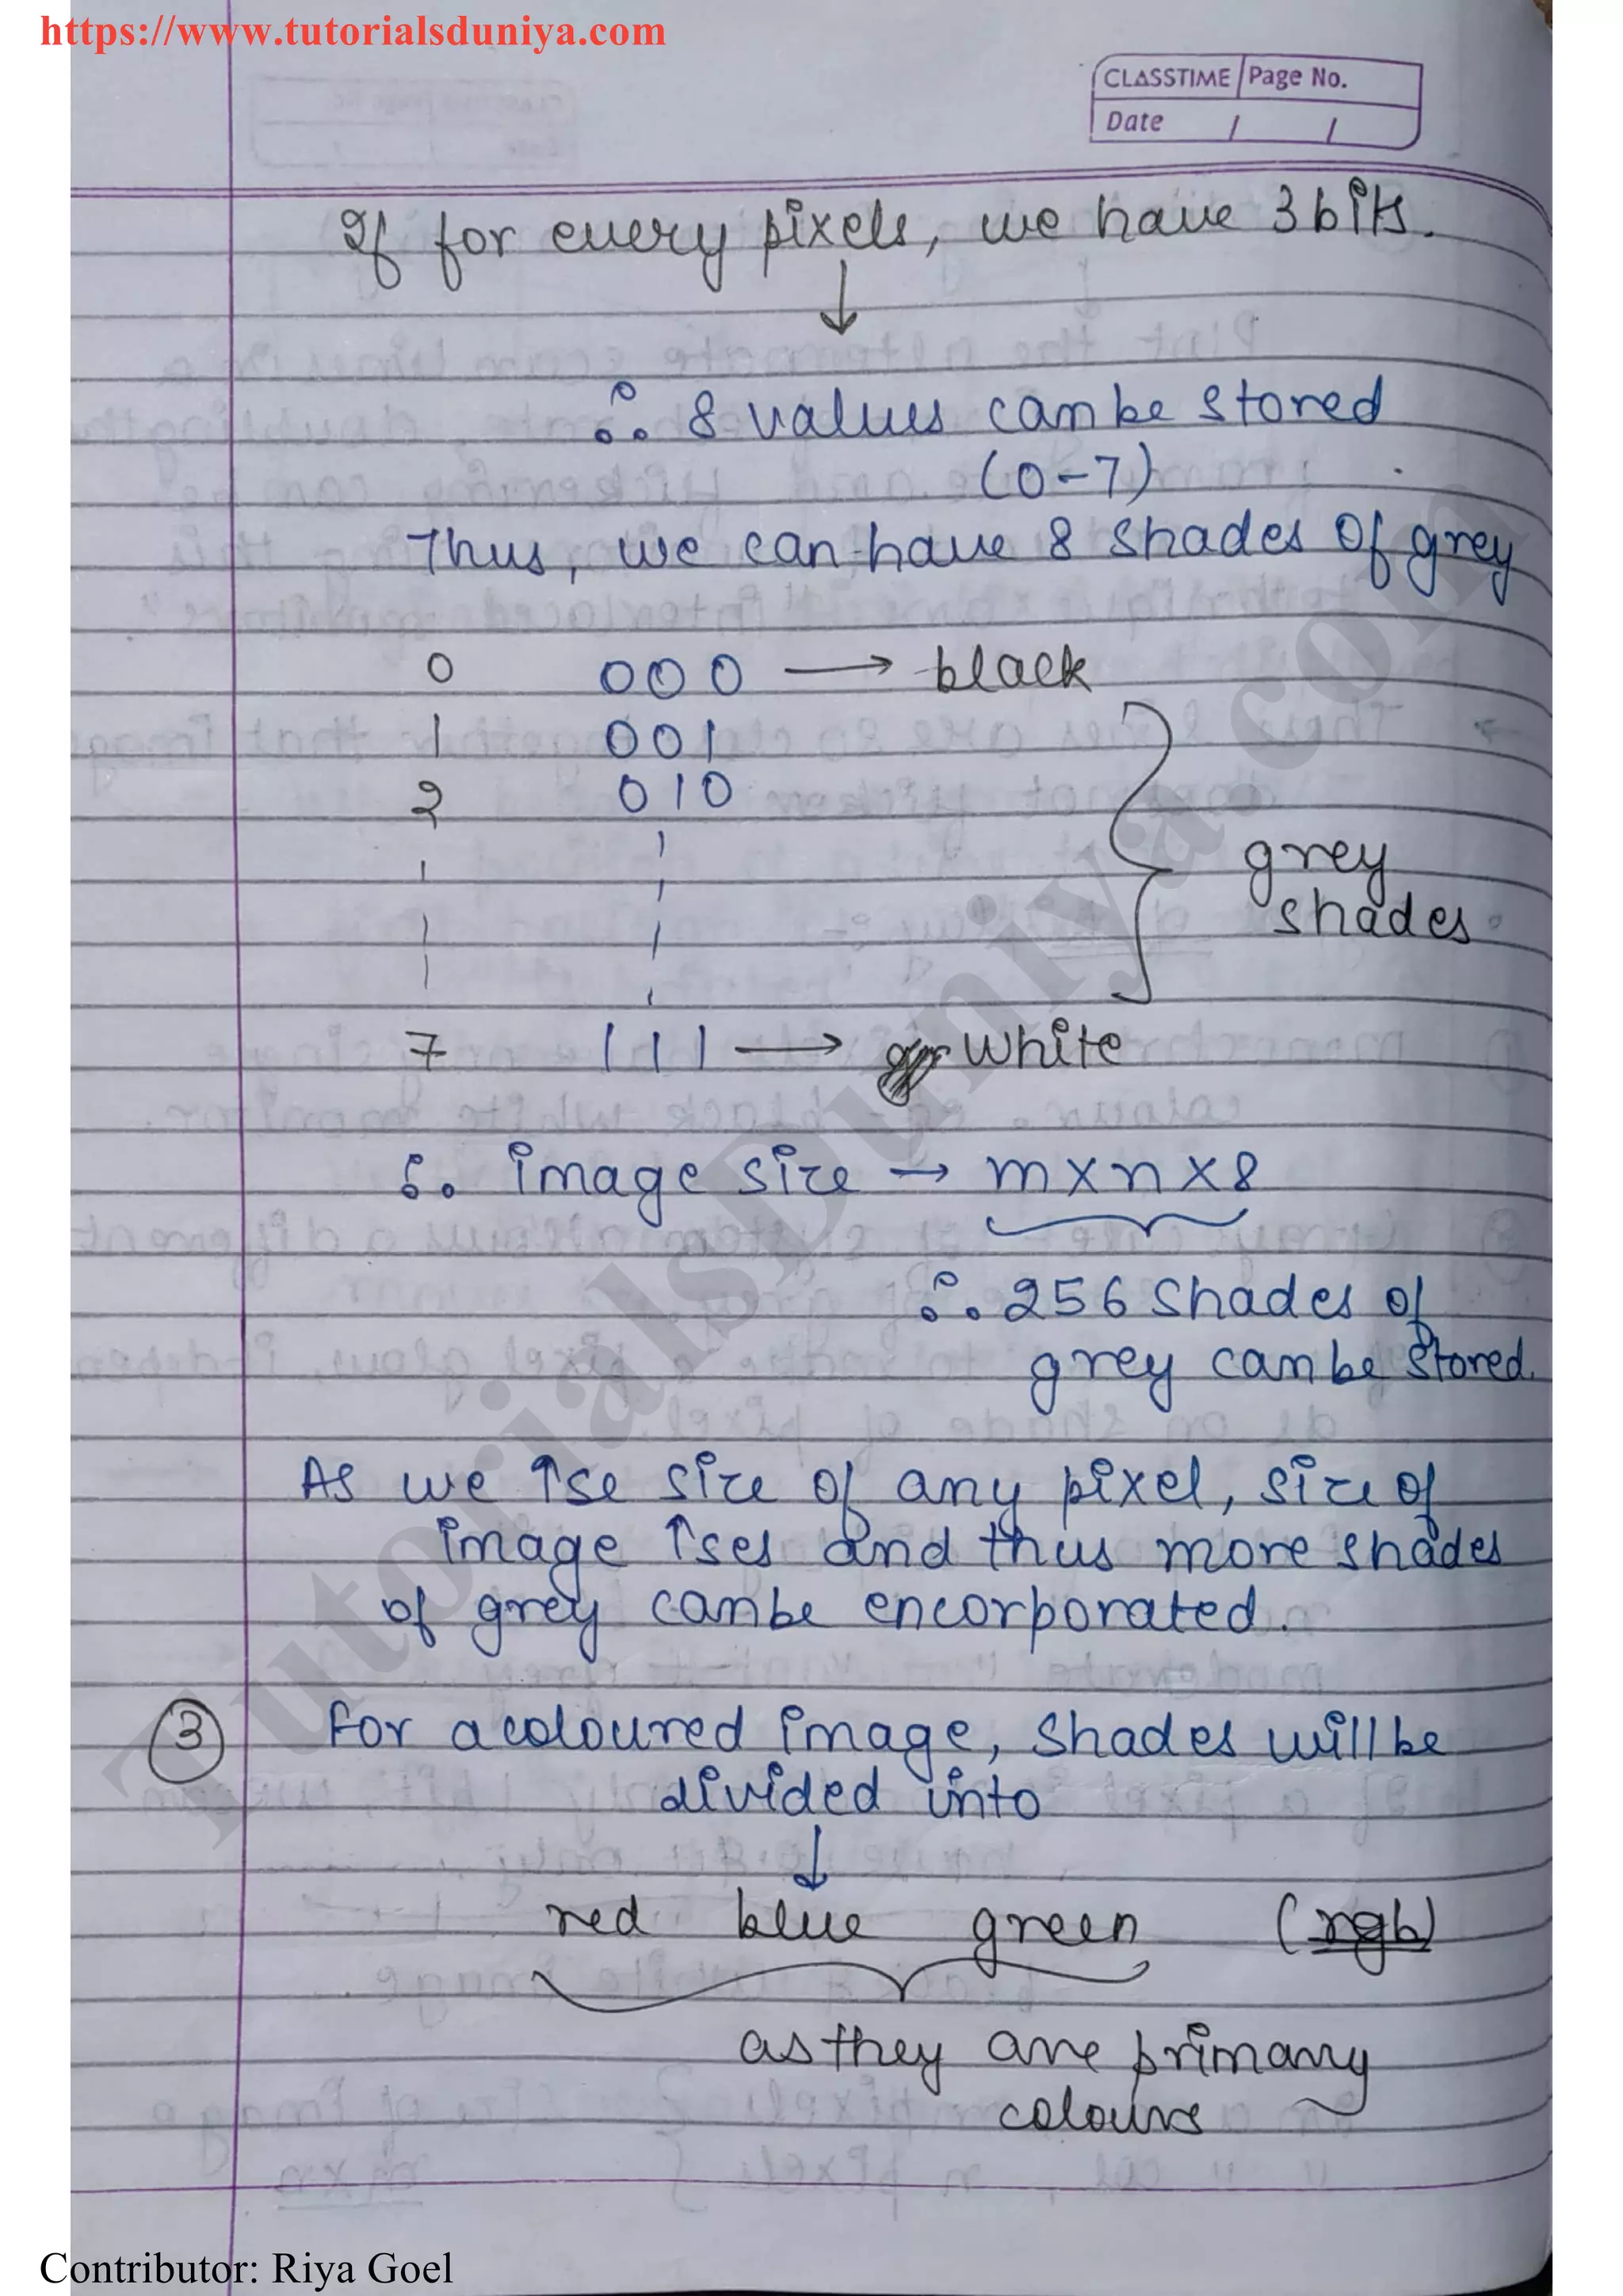 https://www.tutorialsduniya.com
CLASSTIME Page No.
Date / /
If for every pixels, we have 3 bits.
↓
∴ 8 values can be stored
(0-7)
Thus, we can have 8 shades of grey
0 000 → black
1 001
2 010
grey
shades
7 111 → white
∴ image size → m×n×8
∴ 256 shades of
grey can be stored.
As we ↑se size of any pixel, size of
image ↑ses and thus more shades
of grey can be encorporated.
3 For a coloured image, shades will be
divided into
↓
red blue green (rgb)
as they are primary
colours
TutorialsDuniya.com
Contributor: Riya Goel